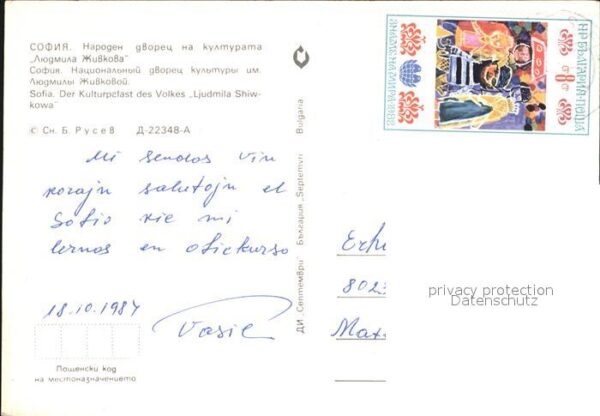 СОФИЯ. Народен дворец на културата
„Людмила Живкова"
София. Национальный дворец культуры им.
Людмилы Живковой.
Sofia. Der Kulturpalast des Volkes „Ljudmila Shiw-
kowa"
© Сн. Б. Русев Д-22348-А
Mi sendas Vin
korajn salutojn el
Sofio kie mi
lernas en
18.10.1984
Vasil
Пощенски код
на местоназначението
ДИ „Септември" България „Septemvri" Bulgaria
НР БЪЛГАРИЯ·ПОЩА
8
Erh
802
Max
privacy protection
Datenschutz